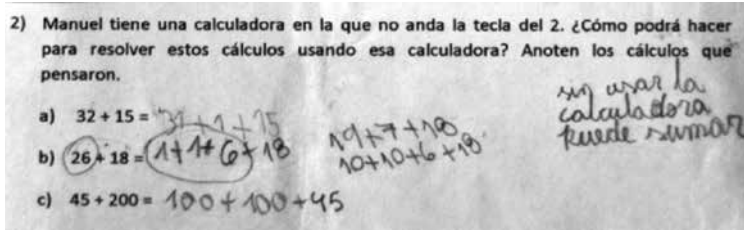 2) Manuel tiene una calculadora en la que no anda la tecla del 2. ¿Cómo podrá hacer
para resolver estos cálculos usando esa calculadora? Anoten los cálculos que
pensaron.
sin usar la
calculadora
puede sumar
a) 32 + 15 = 31+1+15
19+7+18
b) 26 + 18 = 1+1+6+18
10+10+6+18
c) 45 + 200 = 100+100+45